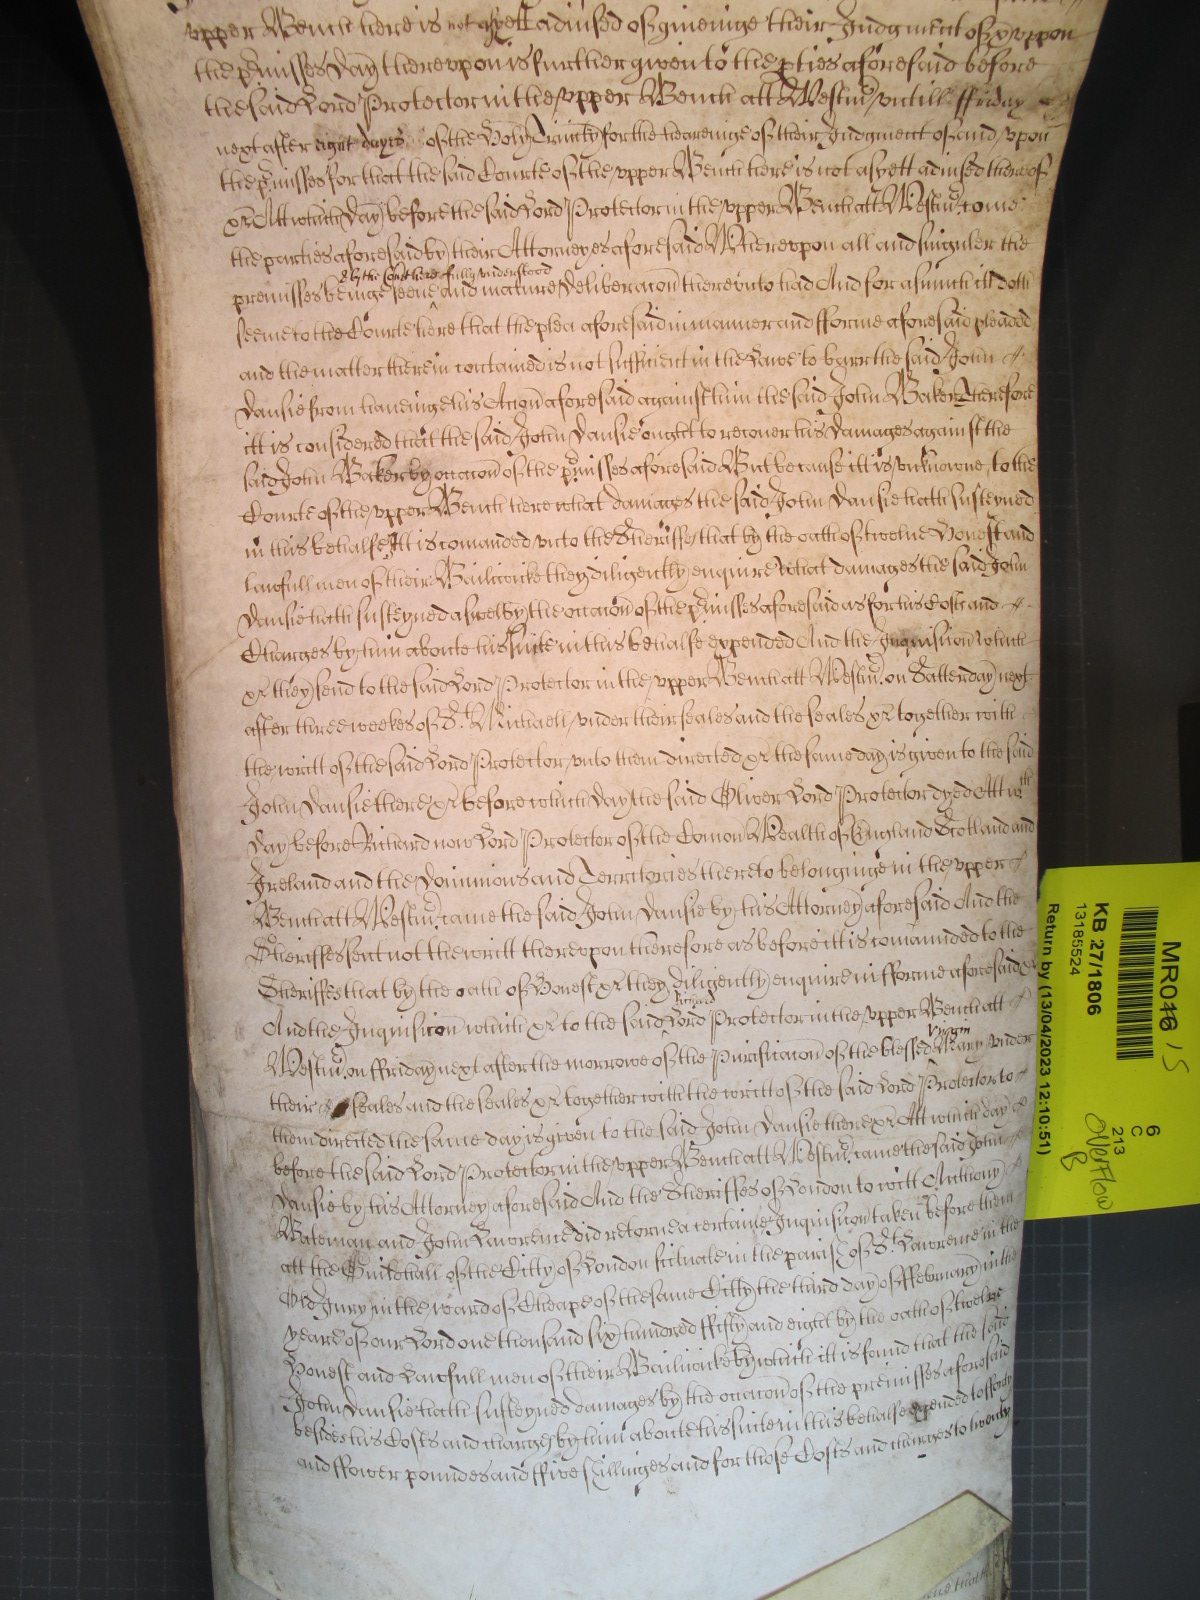 upper Bench here is not as yett advised of giveinge their Judgment of & uppon
the p'misses Day thereupon is further given to the p'ties aforesaid before
the said Lord Protector in the upper Bench att Westm' untill ffriday
next after eight dayes of the Holy Trinity for the heareinge of their Judgment of and upon
the p'misses for that the said Courte of the upper Bench here is not as yett advised thereof
&c Att which Day before the said Lord Protector in the upper Bench att Westm' come
the parties aforesaid by their Attorneyes aforesaid Whereupon all and singuler the
& by the Court here fully understood
premisses beinge seene and mature Deliberacon thereunto had And for asmuch itt doth
seeme to the Courte here that the plea aforesaid in manner and fforme aforesaid pleaded
and the matter therein contained is not sufficient in the Lawe to barr the said John
Dansie from haveinge his Accon aforesaid against him the said John Baker Therefore
itt is considered that the said John Dansie ought to recover his Damages against the
said John Baker by occacon of the p'misses aforesaid But because itt is unknowne to the
Courte of the upper Bench here what damages the said John Dansie hath susteyned
in this behalfe Itt is comanded unto the Sheriffe that by the oath of twelve Honest and
lawfull men of their Bailiwicke they diligently enquire what damages the said John
Dansie hath susteyned aswell by the occacon of the p'misses aforesaid as for his Costs and
Charges by him aboute his suite in this behalfe expended And the Inquisicon which
&c they send to the said Lord Protector in the upper Bench att Westm' on Satterday next
after three weekes of St Michaell under their seales and the seales &c together with
the writt of the said Lord Protector unto them directed &c the same day is given to the said
John Dansie there &c before which Day the said Oliver Lord Protector dyed Att wch
day before Richard now Lord Protector of the Comon Wealth of England Scotland and
Ireland and the Dominions and Territories thereto belonginge in the upper
Bench att Westm' came the said John Dansie by his Attorney aforesaid And the
Sheriffes sent not the writt thereupon therefore as before itt is comaunded to the
Sheriffes that by the oath of Honest &c they diligently enquire in fforme aforesaid
Richard
And the Inquisicon which &c to the said Lord Protector in the upper Bench att
Virgin
Westm' on ffriday next after the morrowe of the Purificacon of the blessed Mary under
their seales and the seales &c together with the writt of the said Lord Protector to
them directed the same day is given to the said John Dansie there &c Att which day
before the said Lord Protector in the upper Bench att Westm' came the said John
Dansie by his Attorney aforesaid And the Sheriffes of London to witt Anthony
Bateman and John Lawrence did retorne a certaine Inquisicon taken before them
att the Guildhall of the Citty of London scituate in the parish of St Lawrence in the
Old Jury in the ward of Cheape of the same Citty the third day of ffebruary in the
yeare of our Lord one thousand six hundred ffifty and eight by the oath of twelve
Honest and Lawfull men of their Bailiwicke by which itt is found that the said
John Dansie hath susteyned damages by the occacon of the premisses aforesaid
besides his Costs and charges by him aboute his suite in this behalfe expended to fforty
and ffower poundes and ffive shillinges and for those Costs and charges to twenty
MR046 15
KB 27/1806
13185524
Return by (13/04/2023 12:10:51)
6
C
213
Overflow
B